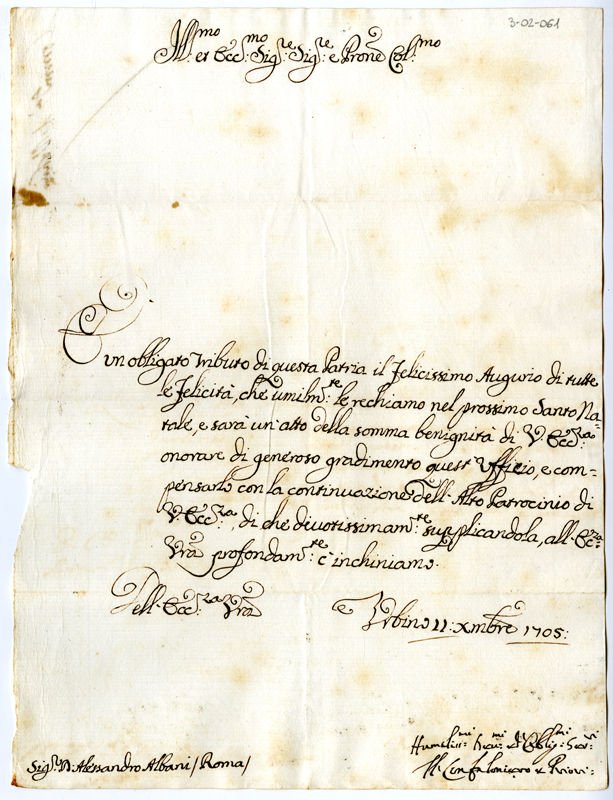 3-02-061
Ill:mo et Ecc:mo Sig:re Sig:re e Prone Col:mo
È un obligato tributo di questa Patria il felicissimo Augurio di tutte
le felicità, che umilm:te le rechiamo nel prossimo Santo Na=
tale, e sarà un' atto della somma benignità di V. Ecc:za
onorare di generoso gradimento quest' Uffizio, e com=
pensarlo con la continuazione dell' Alto Patrocinio di
V. Ecc:za, di che divotissimam:te supplicandola, all' Ecc:za
Vra profondam:te c' inchiniamo.
Dell' Ecc:za Vra
Urbino 11: Xmbre 1705:
Humiliss:mi et Oblig:mi Ser:ri
Il Confaloniero e Priori
Sig:r D: Alessandro Albani / Roma /